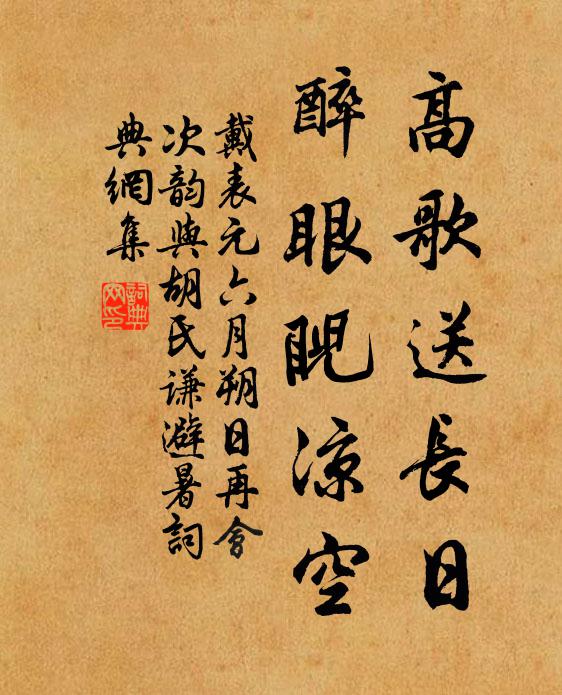 高歌送長日
醉眼睨凉空
戴表元六月朔日再會
次韵與胡氏谦避暑詞
典網集
詞典網印